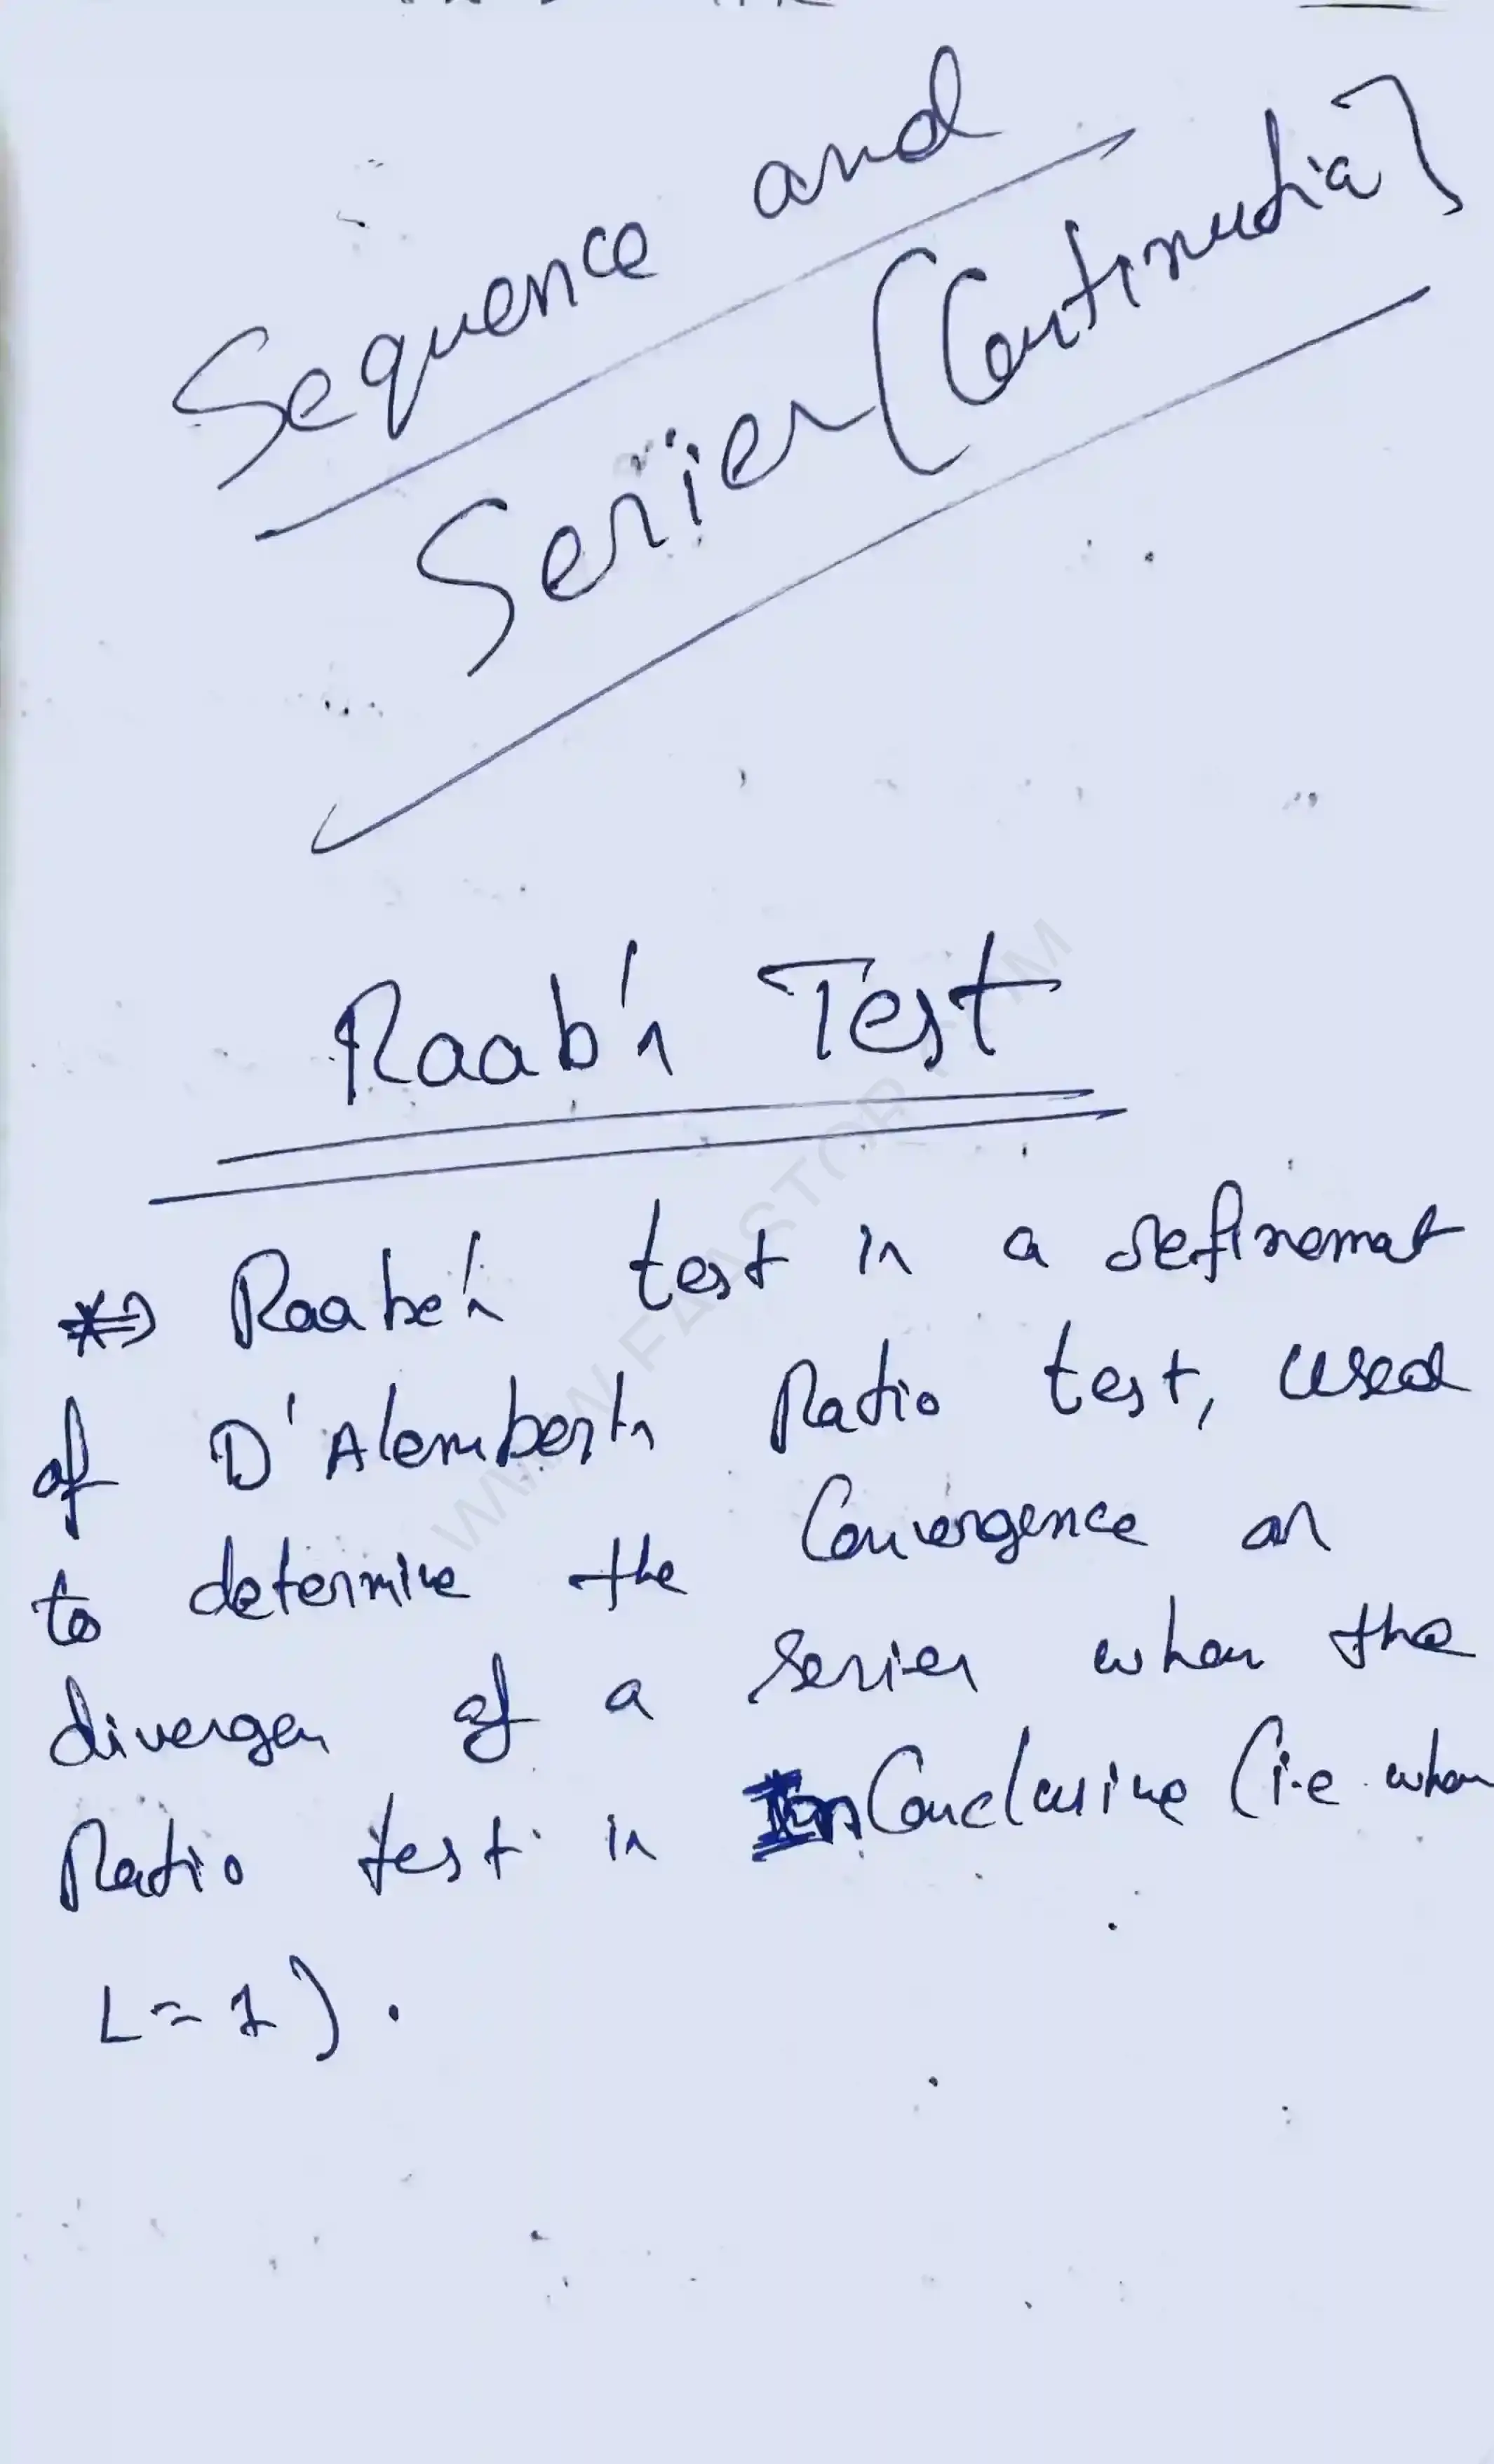 Sequence and
Series (Continudia)
Raab's Test
*⇒ Raabe's test is a refinemat
of D'Alemberts Ratio test, used
to determine the Convergence or
divergen of a series when the
Ratio test is InConclusive (i.e when
L = 1).
WWW.FASTOP.COM